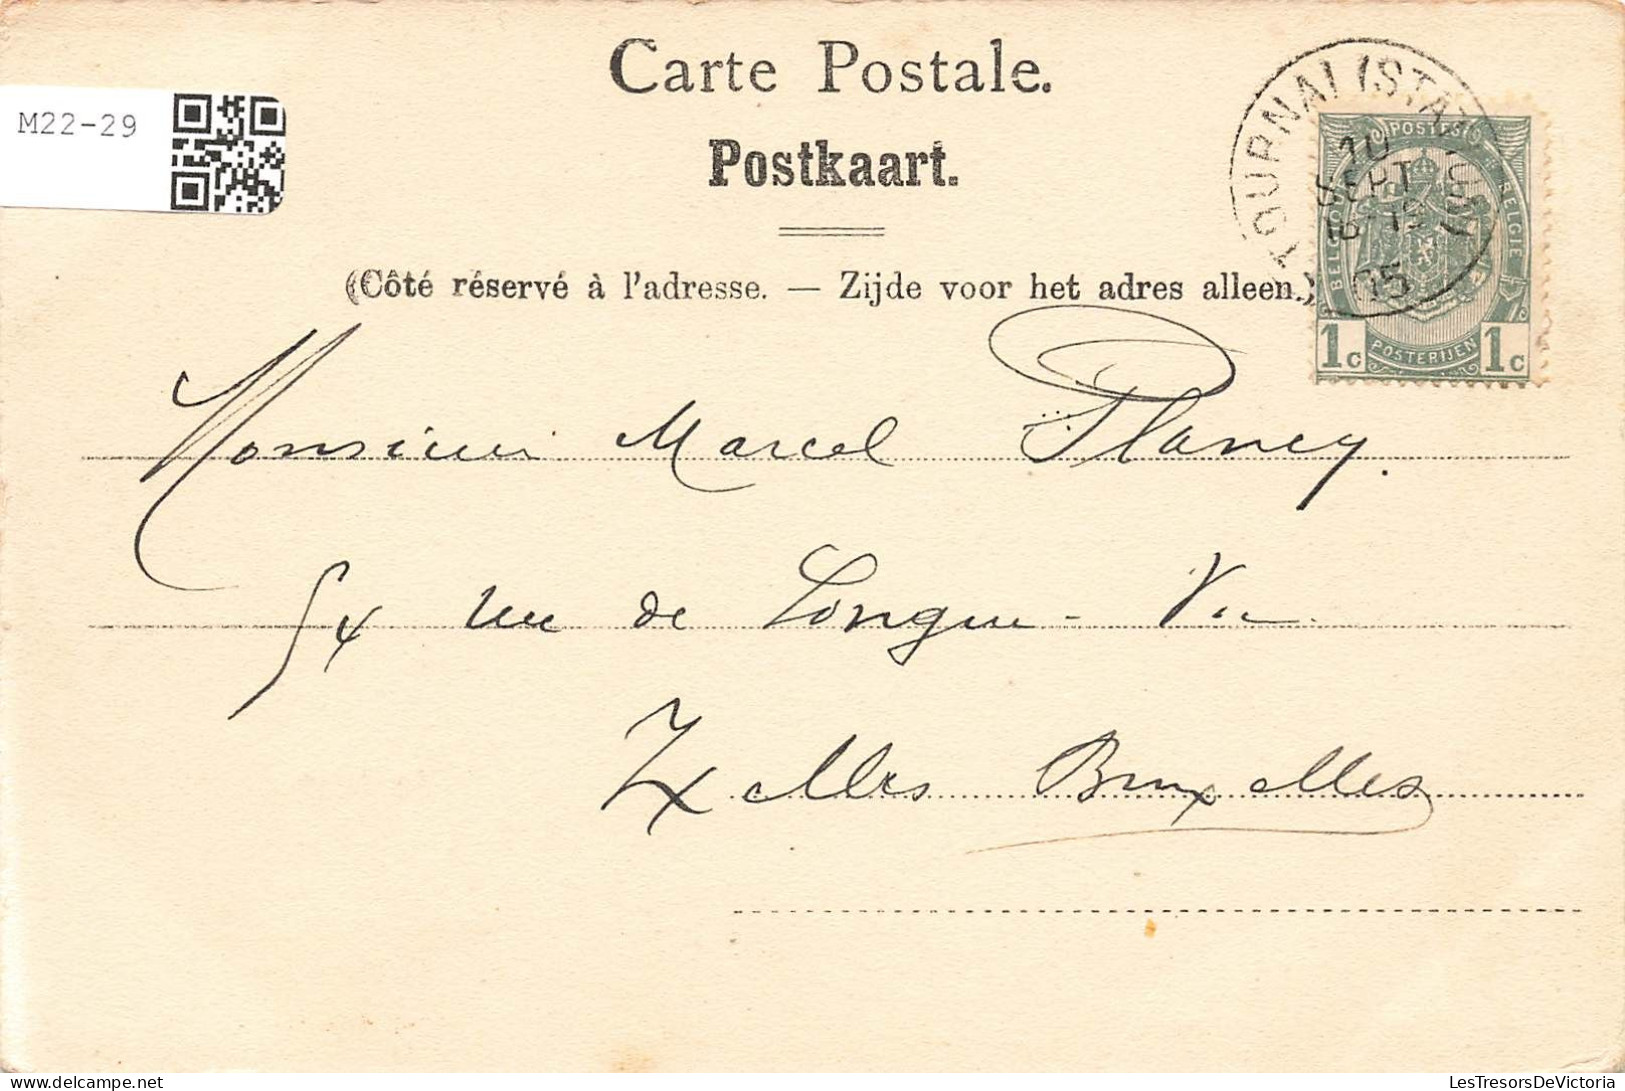 Carte Postale.
Postkaart.
M22-29
(Côté réservé à l'adresse. — Zijde voor het adres alleen.)
TOURNAI (STATION)
10
SEPT
18-19
05
POSTES
BELGIQUE
BELGIE
POSTERIJEN
1c 1c
Monsieur Marcel Plancy.
54 rue de Longue-Vie
Ixelles Bruxelles
Delcampe.net
LesTresorsDeVictoria